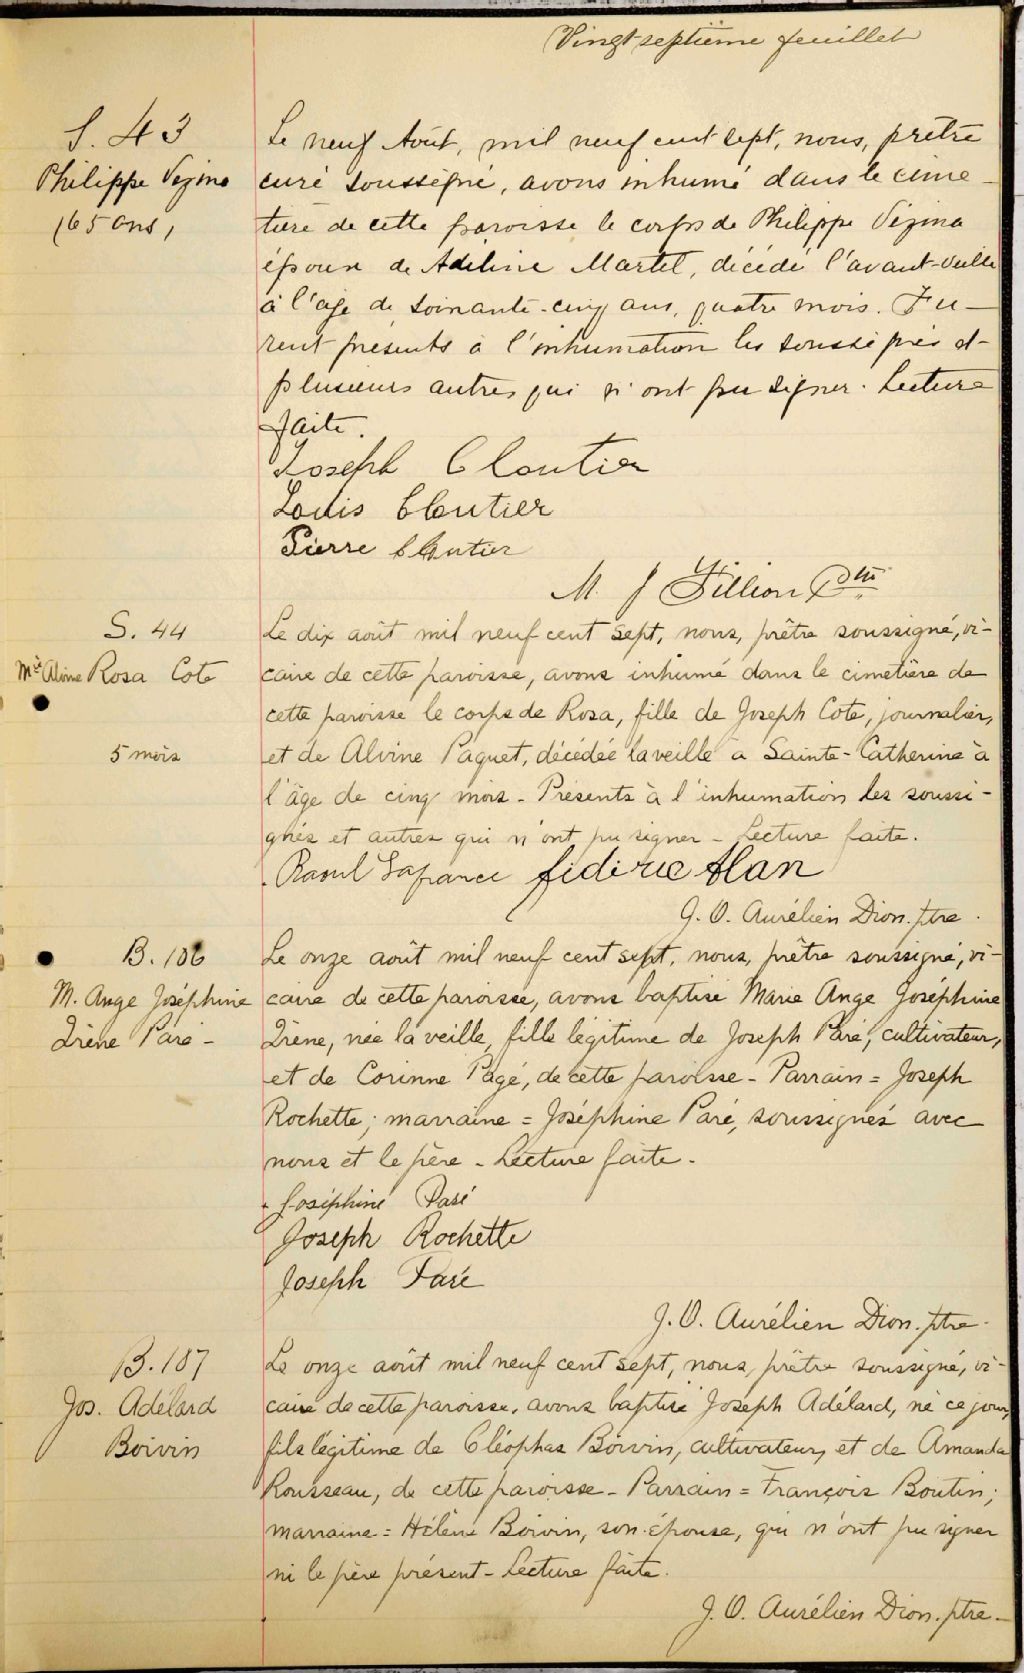 Vingt-septième feuillet
S. 43
Philippe Vézina
65 ans,
Le neuf Août, mil neuf cent sept, nous, prêtre
curé soussigné, avons inhumé dans le cime-
tière de cette paroisse le corps de Philippe Vézina
époux de Adéline Martel, décédé l'avant-veille
à l'âge de soixante-cinq ans, quatre mois. Fu-
rent présents à l'inhumation les soussignés et
plusieurs autres qui n'ont pu signer. Lecture
faite.
Joseph Cloutier
Louis Cloutier
Pierre Cloutier
M. J Fillion Ptre
S. 44
Mie Alvine Rosa Cote
5 mois
Le dix août mil neuf cent sept, nous, prêtre soussigné, vi-
caire de cette paroisse, avons inhumé dans le cimetière de
cette paroisse le corps de Rosa, fille de Joseph Cote, journalier,
et de Alvine Paquet, décédée la veille à Sainte-Catherine à
l'âge de cinq mois - Présents à l'inhumation les soussi-
gnés et autres qui n'ont pu signer - Lecture faite.
Raoul Lafrance fidéric Alan
J. O. Aurélien Dion. ptre.
B. 106
M. Ange Joséphine
Irène Paré -
Le onze août mil neuf cent sept, nous, prêtre soussigné, vi-
caire de cette paroisse, avons baptisé Marie Ange Joséphine
Irène, née la veille, fille légitime de Joseph Paré, cultivateur,
et de Corinne Pagé, de cette paroisse - Parrain = Joseph
Rochette; marraine = Joséphine Paré, soussignés avec
nous et le père - Lecture faite -
Joséphine Paré
Joseph Rochette
Joseph Paré
J. O. Aurélien Dion. ptre -
B. 107
Jos. Adélard
Boivin
Le onze août mil neuf cent sept, nous, prêtre soussigné, vi-
caire de cette paroisse, avons baptisé Joseph Adélard, né ce jour,
fils légitime de Cléophas Boivin, cultivateur, et de Amanda
Rousseau, de cette paroisse - Parrain = François Boutin;
marraine = Hélène Boivin, son épouse, qui n'ont pu signer
ni le père présent - Lecture faite.
J. O. Aurélien Dion. ptre -